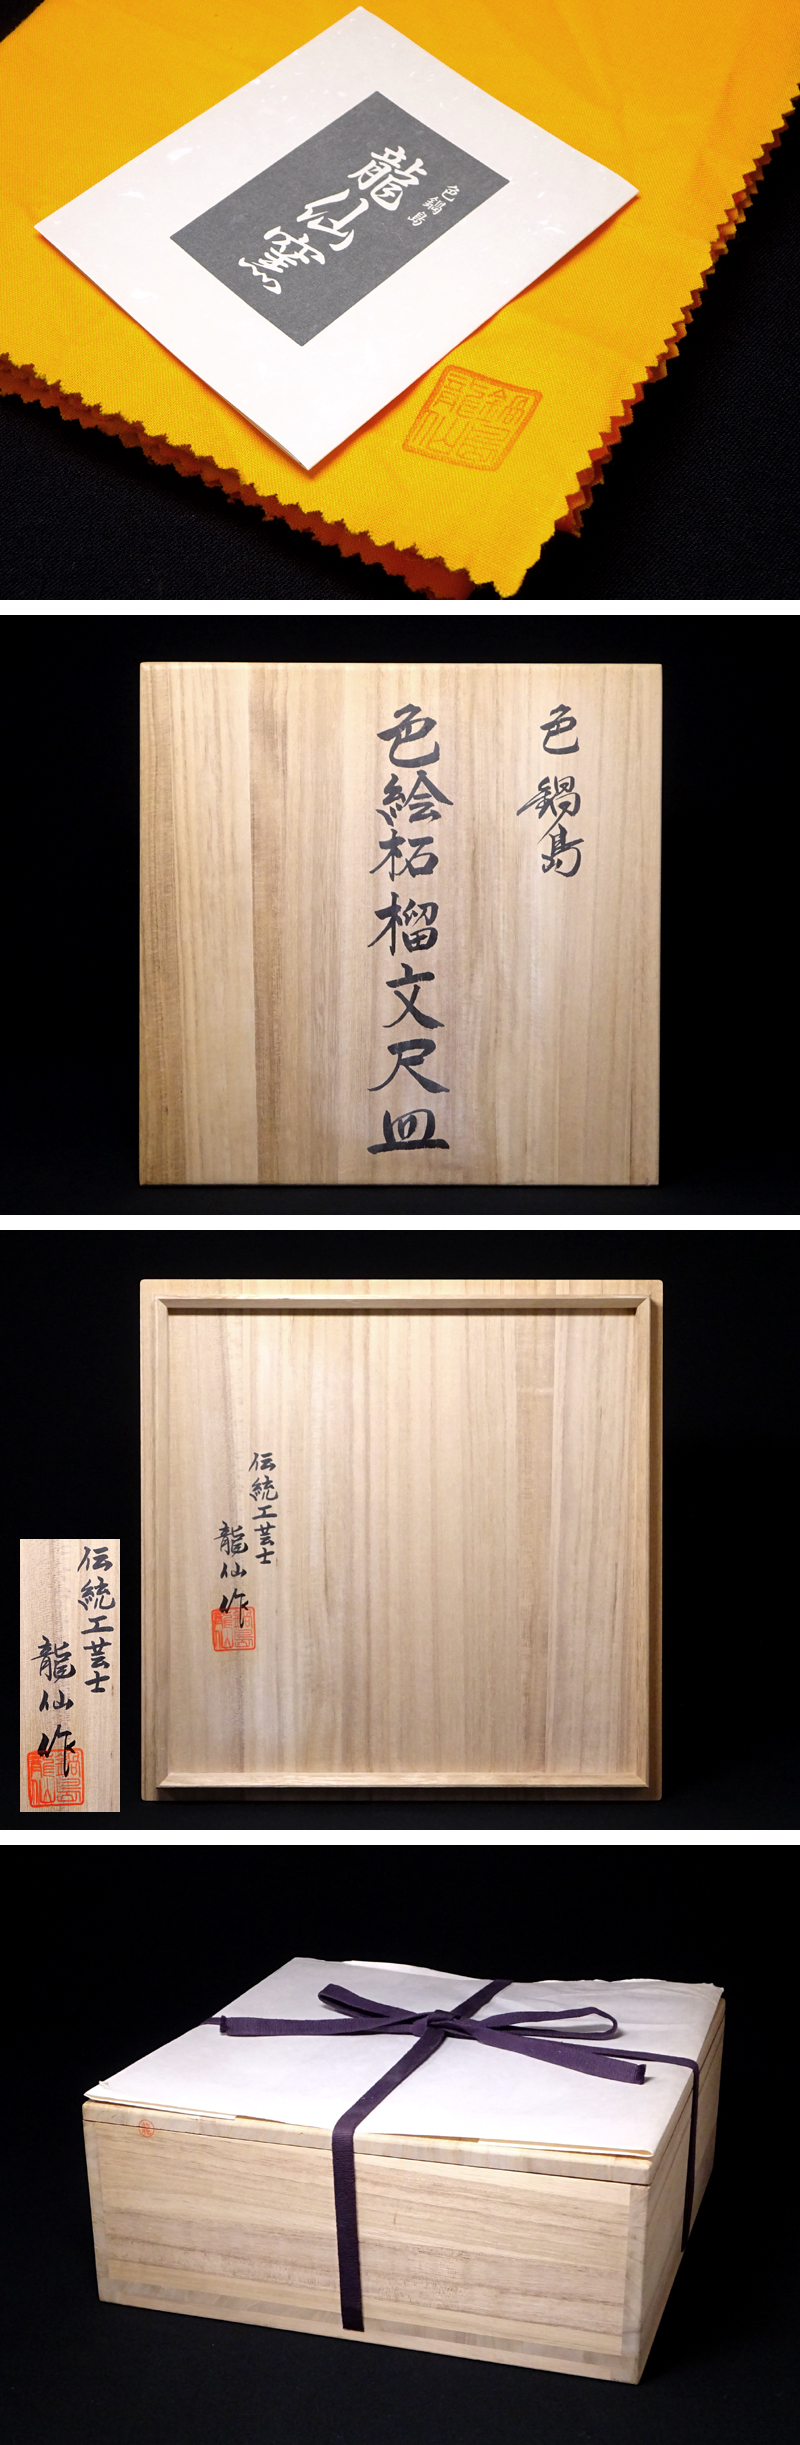 色鍋島
龍仙窯
鍋島
龍仙
色鍋島
色絵柘榴文尺皿
伝統工芸士
龍仙作
鍋島
龍仙
伝統工芸士
龍仙作
鍋島
龍仙